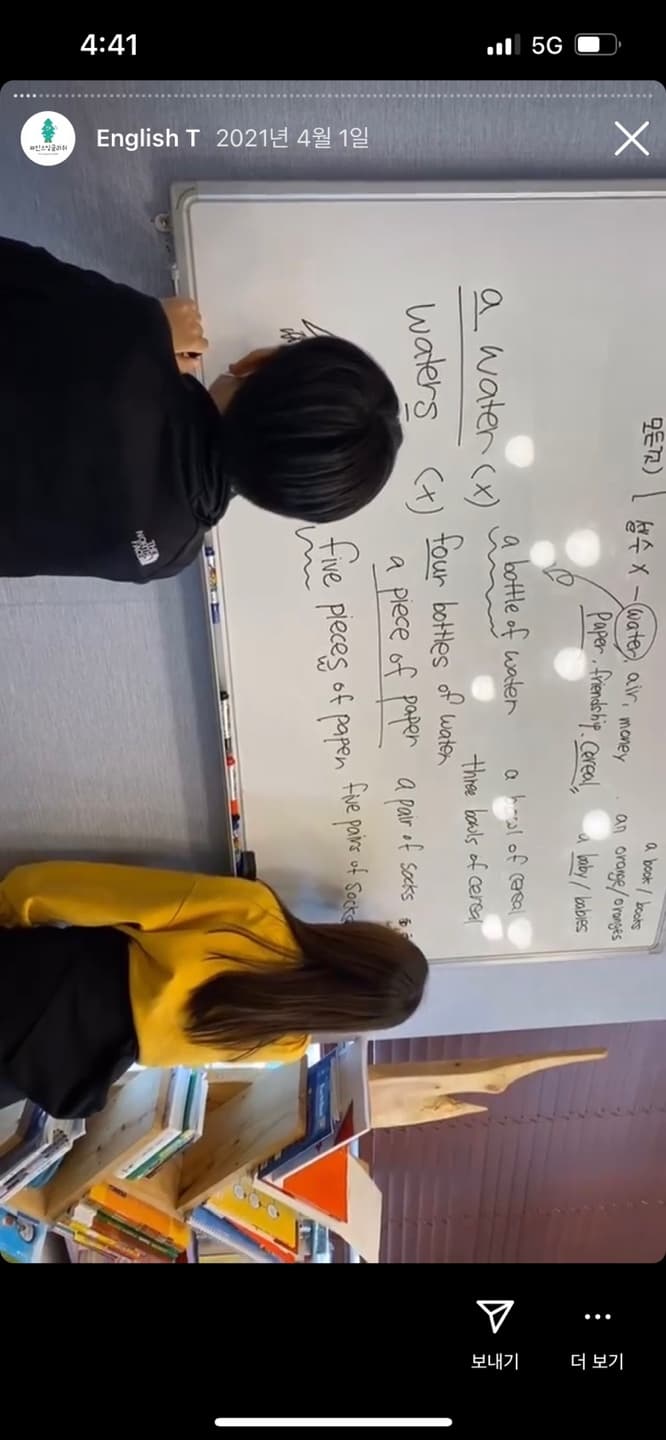 4:41
5G
English T 2021년 4월 1일
a book / books
셀수 X - water, air, money
an orange/oranges
paper, friendship, cereal
a baby / babies
a water (x) a bottle of water a bowl of cereal
waters (x) four bottles of water three bowls of cereal
a piece of paper a pair of socks
five pieces of paper five pairs of socks
THE NORTH FACE
보내기
더 보기